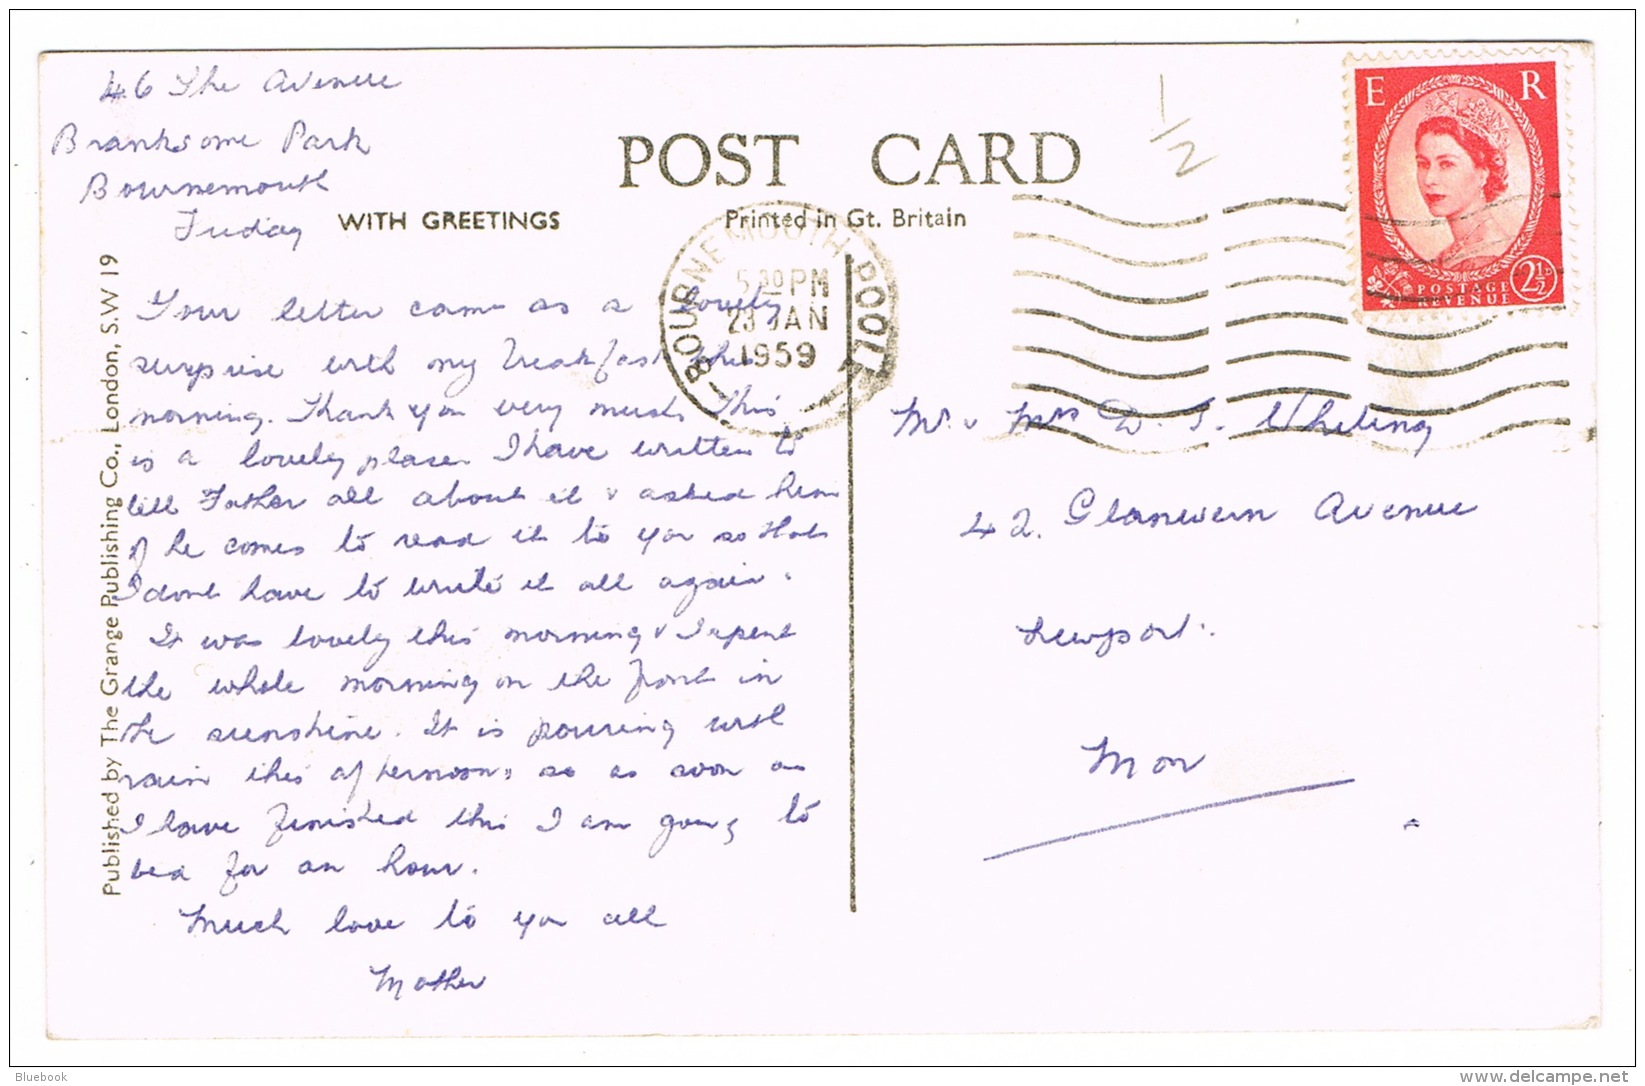 46 The Avenue
Branksome Park
Bournemouth
Friday
WITH GREETINGS
POST CARD
Printed in Gt. Britain
1/2
E R
POSTAGE
REVENUE
2½D
BOURNEMOUTH POOLE
5.30 PM
23 JAN
1959
Your letter came as a lovely
surprise with my breakfast this
morning. Thank you very much. This
is a lovely place. I have written to
tell Father all about it & asked him
if he comes to read it to you so that
I dont have to write it all again.
It was lovely this morning & I spent
the whole morning on the front in
the sunshine. It is pouring with
rain this afternoon, so as soon as
I have finished this I am going to
bed for an hour.
Much love to you all
Mother
Mr. & Mrs D. J. Whiting
42. Glanwern Avenue
Newport.
Mon
Published by The Grange Publishing Co., London, S.W 19
Bluebook
delcampe.net